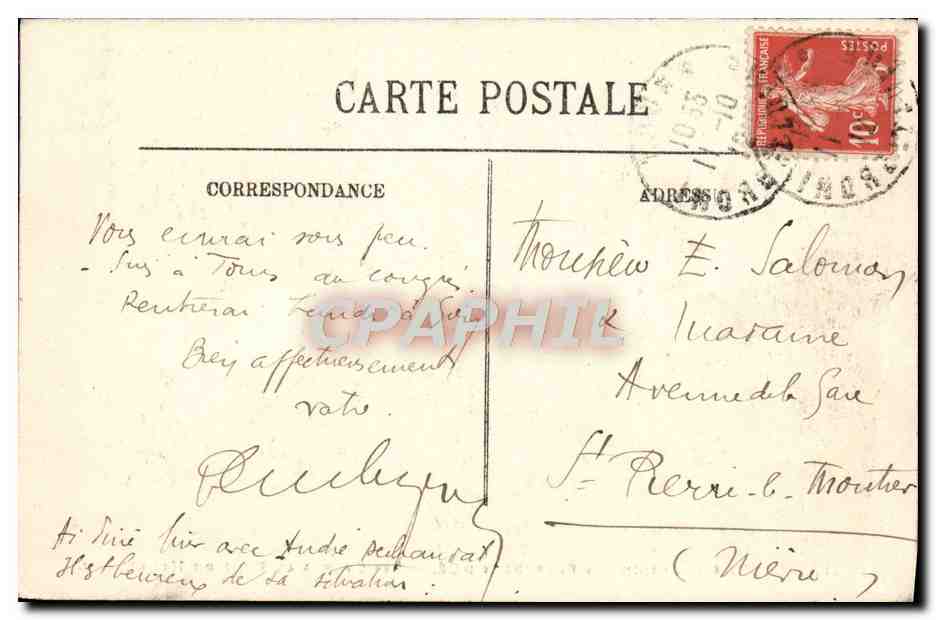 CARTE POSTALE
RÉPUBLIQUE FRANÇAISE
POSTES
10c
CORRESPONDANCE
ADRESSE
Vous écrirai sous peu.
- Suis à Tours au congrès
Rentrerai lundi à
Bien affectueusement
votre
Ai diné hier avec André
Est heureux de sa situation.
Monsieur E. Salomon
& Madame
Avenue de la Gare
St Pierre-le-Moutier
(Nièvre)
CPAPHIL